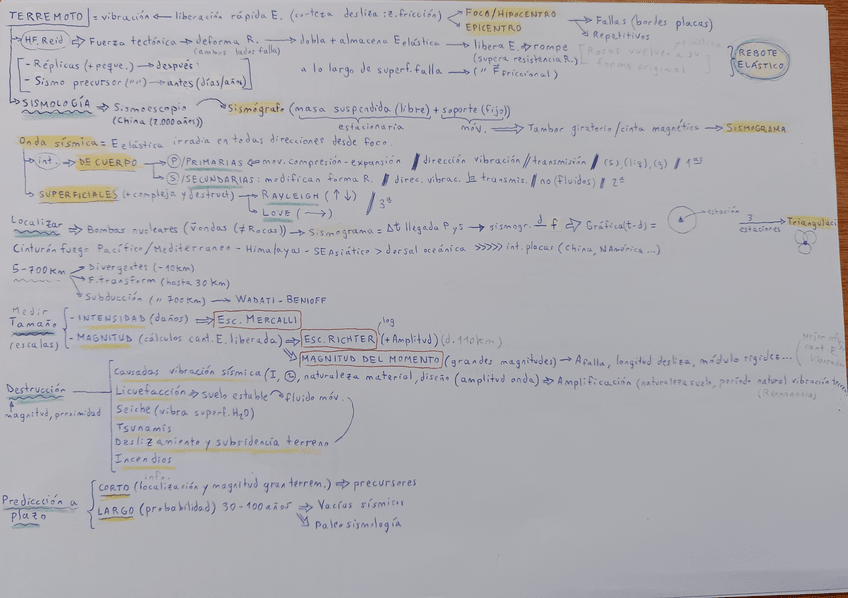 TERREMOTO = vibración ← liberación rápida E. (corteza desliza: z. fricción) FOCO/HIPOCENTRO → Fallas (bordes placas)
EPICENTRO → Repetitivos
HF. Reid ⇒ Fuerza tectónica → deforma R. → dobla + almacena E elástica → libera E. → rompe [Rocas vuelve a su forma original] REBOTE ELÁSTICO
(ambos lados falla) (supera resistencia R.)
- Réplicas (+ peque.) → después
- Sismo precursor (" ") → antes (días/años) a lo largo de superf. falla → (" F friccional)
SISMOLOGÍA ⇒ Sismoscopio → Sismógrafo (masa suspendida (libre) + soporte (fijo))
(China (2.000 años)) estacionaria móv. ⇒ Tambor giratorio/cinta magnética → SISMOGRAMA
Onda sísmica = E elástica irradia en todas direcciones desde foco.
int. ⇒ DE CUERPO → P/PRIMARIAS ⇐ mov. compresión-expansión / dirección vibración // transmisión / (s), (liq), (g) / 1as
S/SECUNDARIAS: modifican forma R. / direc. vibrac. ⊥ transmis. / no (fluidos) / 2ª
SUPERFICIALES (+ compleja y destruct) → RAYLEIGH (↑↓) / 3ª
LOVE (→)
Localizar ⇒ Bombas nucleares (v ondas (≠ Rocas)) → Sismograma = Δt llegada P y S → sismogr. d f ⇒ Gráfica (t-d) = estación 3 estaciones → Triangulaci
Cinturón fuego = Pacífico / Mediterraneo - Himalayas - SE Asiático > dorsal oceánica >>>>> int. placas (China, NAmérica...)
5-700km → Divergentes (-10km)
F. transform (hasta 30 km)
Subducción (" 700km) → WADATI-BENIOFF
Medir Tamaño (escalas) - INTENSIDAD (daños) ⇒ ESC. MERCALLI
- MAGNITUD (cálculos cant. E. liberada) ⇒ ESC. RICHTER log (+ Amplitud) (d. 110km)
MAGNITUD DEL MOMENTO (grandes magnitudes) → A falla, longitud desliza, módulo rigidez...
Destrucción
magnitud, proximidad
Causadas vibración sísmica (I, naturaleza material, diseño (amplitud onda) ⇒ Amplificación (naturaleza suelo, período natural vibración
(Resonancia)
Licuefacción ⇒ suelo estable → fluido móv.
Seiche (vibra superf. H₂O)
Tsunamis
Deslizamiento y subsidencia terreno
Incendios
Predicción a plazo
info.
CORTO (localización y magnitud gran terrem.) ⇒ precursores
LARGO (probabilidad) 30-100 años ⇒ Vacíos sísmicos
Paleosismología